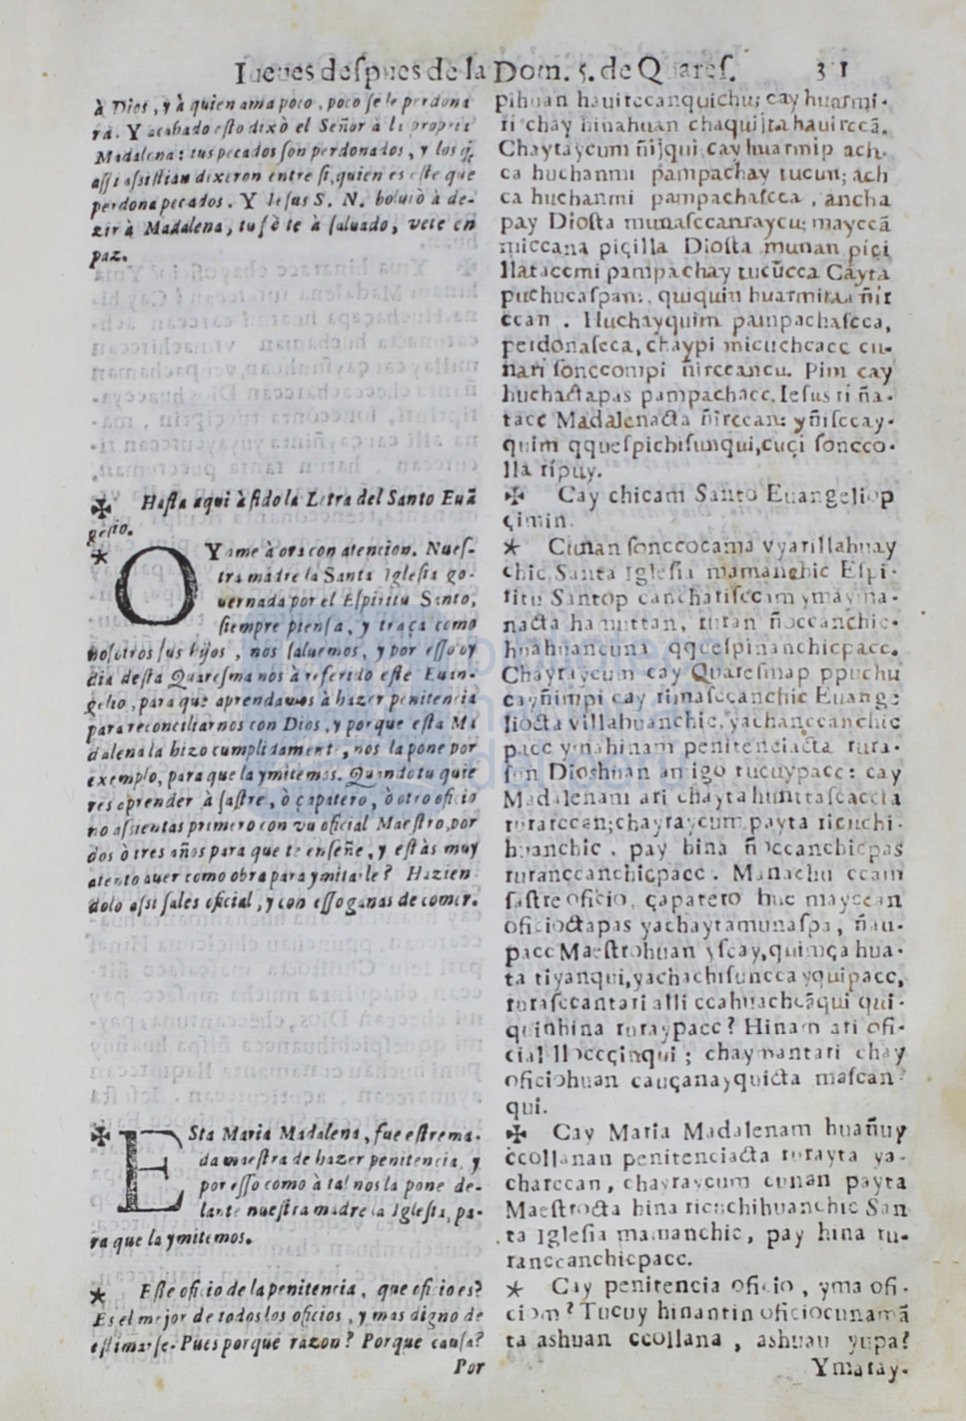 Iueues despues de la Dom. 5. de Quares. 31
à Dios, y à quien ama poco, poco se le perdona
rà. Y acabado esto dixò el Señor à la propria
Madalena: tus pecados son perdonados, y los q̃
assi assistian dixeron entre si, quien es este que
perdona pecados. Y Iesus S. N. boluiò à de-
zir à Madalena, tu fè te à saluado, vete en
paz.
✠ Hasta aqui à sido la Letra del Santo Euã
gelio.
* OYame à ora con atencion. Nues-
tra madre la Santa Iglesia go-
uernada por el Espiritu Santo,
siempre piensa, y traça como
nosotros sus hijos, nos saluemos, y por esso oy
dia desta Quaresma nos à referido este Euan-
gelio, para que aprendamos à hazer penitencia
para reconciliarnos con Dios, y porque esta Ma
dalena la hizo cumplidamente, nos la pone por
exemplo, para que la ymitemos. Quando tu quie
res aprender à sastre, ò çapatero, ò otro oficio
no assientas primero con vn oficial Maestro, por
dos ò tres años para que te enseñe, y estàs muy
atento a ver como obra para ymitarle? Hazien
dolo assi sales oficial, y con esso ganas de comer.
✠ ESta Maria Madalena, fue estrema-
da maestra de hazer penitencia, y
por esso como à tal nos la pone de-
lante nuestra madre la Iglesia, pa-
ra que la ymitemos.
* Este oficio de la penitencia, que oficio es?
Es el mejor de todos los oficios, y mas digno de
estimarse. Pues porque razon? Porque causa?
Por
pihuan hauirccanquichu; cay huarmi-
ri chay hinahuan chaquijta hauirccã.
Chaytaycum ñijqui, cay huarmip ach-
ca huchanmi pampachay tucun; ach
ca huchanmi pampachascca, ancha
pay Diosta munasccanraycu; mayccã
miccana piçilla Diosta munan piçi
llataccmi pampachay tucũcca Cayta
puchucaspan, quiquin huarmitaa ñir
ccan. Huchayquim pampachascca,
perdonasca, chaypi micuchcacc cu-
nari soncconipi ñirccancu. Pim cay
huchactapas pampachacc. Iesus ri ña-
tacc Madalenacta ñirccan: yñisccay-
quim qquespichisunqui, cuçi soncco-
lla ripuy.
✠ Cay chicam Santo Euangeliop
çimin.
* Cunan sonccocama vyarillahuay
chic, Santa Iglesia mamanchic Espi-
ritu Santop canchatisccam ymayma-
nacta hamuttan, turan ñoccanchic-
huahuancuna qquespinanchicpacc.
Chayraycum cay Quaresmap ppuchu
cayñimpi cay rimasccanchic Euange
liocta villahuanchic, yachanccanchic
pacc ymahinam penitenciacta rura-
son Dioshuan amigo tucuypacc: cay
Madalenam ari chayta hunttascaccta
rurarccan; chayraycum payta ricuchi-
huanchic, pay hina ñoccanchicpas
ruranccanchicpacc. Manachu ccam
sastre oficio, çapatero huc mayccan
oficioctapas yachayta munaspa, ñau-
pacc Maestrohuan yscay, quimça hua-
ta tiyanqui, yachachisuncca yquipacc,
rurasccantari alli ccahuachcãqui qui-
quinhina ruraypacc? Hinam ari ofi-
cial llocçinqui; chaymantari chay
oficiohuan cauçanayquicta mascan-
qui.
✠ Cay Maria Madalenam huañuy
ccollanan penitenciacta rurayta ya-
charccan, chayraycum cunan payta
Maestrocta hina ricuchihuanchic San
ta Iglesia mamanchic, pay hina ru-
ranccanchicpacc.
* Cay penitencia oficio, yma ofi-
ciom? Tucuy hinantin oficiocunamã
ta ashuan ccollana, ashuan yupa?
Ymaray-